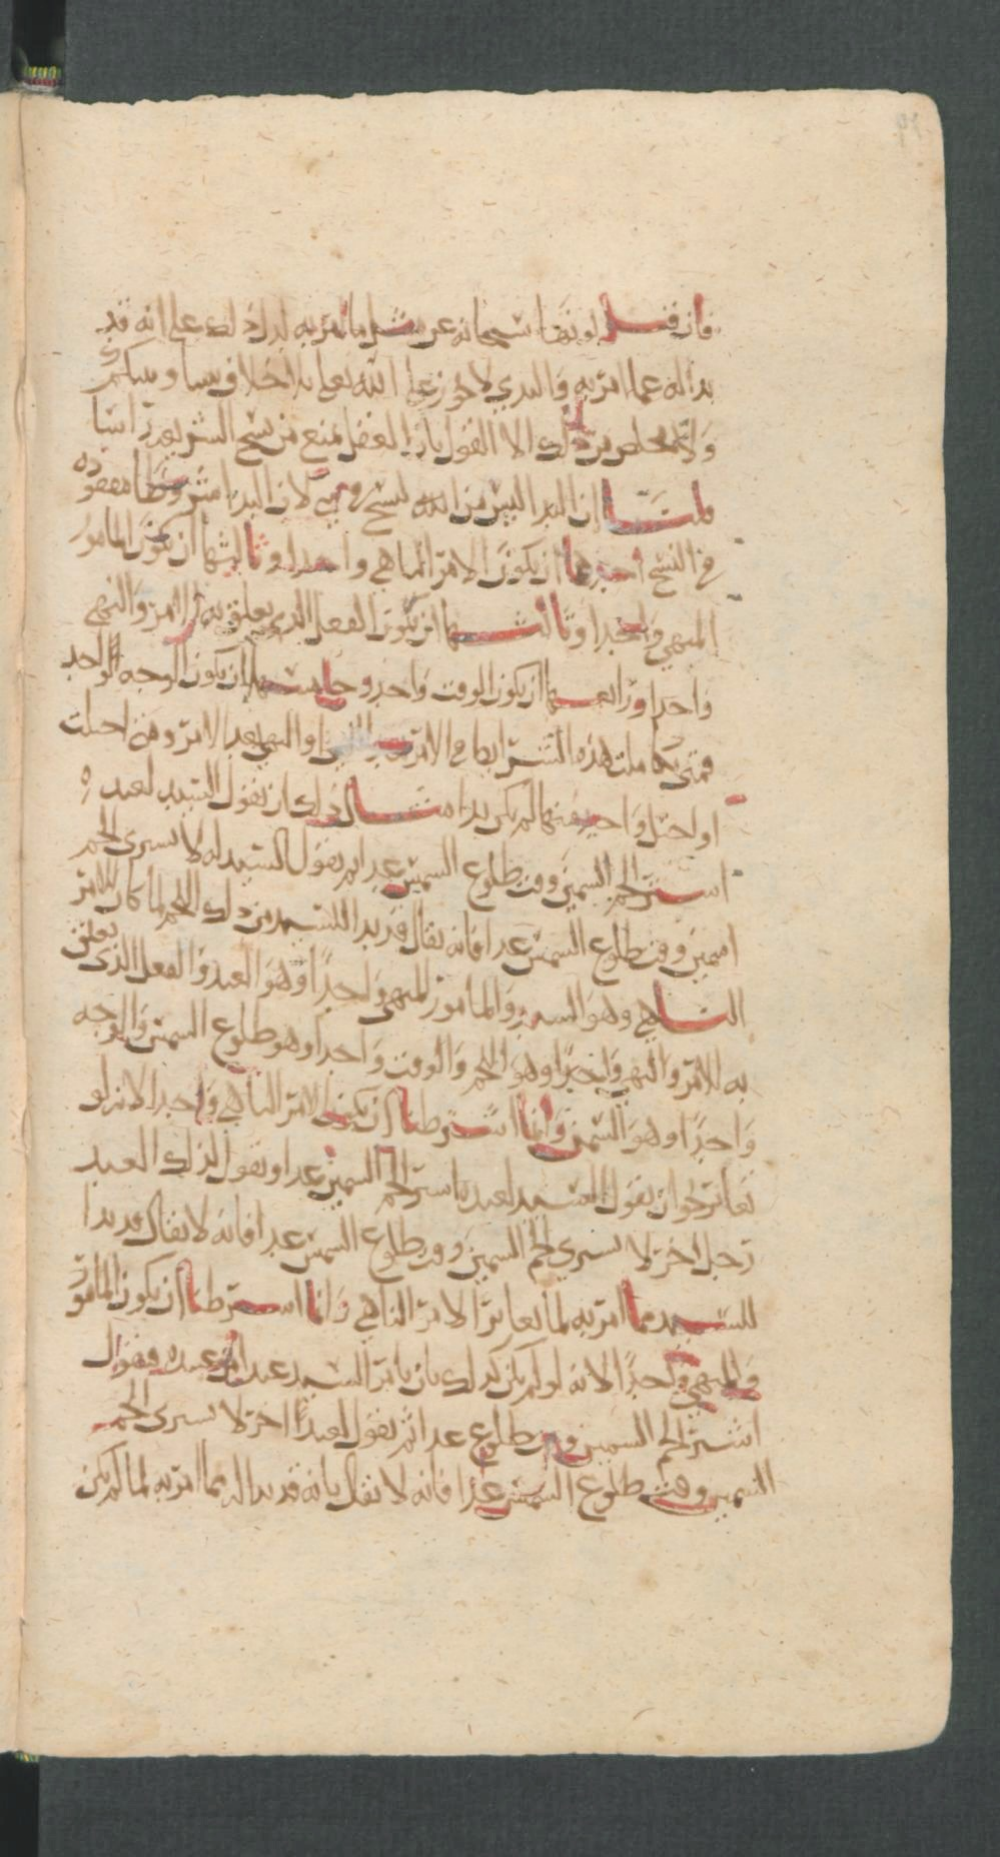 فان قيل لو نها سبحانه عن مثل ما امر به لدل ذلك على انه قد
بدا له عما امر به والبدي لا يجوز على الله تعلى بلا خلاف بيننا وبينكم
ولا مخلص من ذلك الا القول بان العقل يمنع من نسخ الشريعة راسا
قلنا ان البدا ليس من النسخ في لان البدا شروطا مفقوده
في النسخ احدها ان يكون الامر الناهي واحدا وثانيها ان يكون المامور
المنهي واحدا وثالثها ان يكون الفعل الذي يعلق به الامر والنهي
واحدا ورابعها ان يكون الوقت واحد وخامسها ان يكون الوجه الواحد
فمتى تكاملت هذه الشرايط في الامر بعد النهي او النهي بعد الامر ومتى اختلت
او اختل واحد منها لم يكن بدا مثال ذلك ان يقول السيد لعبده
اشتر لحم السمين وقت طلوع الشمس غدا ثم يقول السيد له لا تشري لحم
اسمين وقت طلوع الشمس غدا فانه يقال قد بدا للسيد من ذلك اللحم لما كان الامر
الناهي وهو السيد والمامور المنهي واحدا وهو العبد والفعل الذي يعلق
به الامر والنهي واحدا وهو اللحم والوقت واحدا وهو طلوع الشمس والوجه
واحدا وهو السمن وانما اشترطنا ان يكون الامر الناهي واحدا لانه لو
تغاير نحو ان يقول السيد لعبده اشتر لحم السمين غدا ويقول لذلك العبد
رجل اخر لا تشري لحم السمين وقت طلوع الشمس غدا فانه لا يقال قد بدا
للسيد مما امر به لما تغاير الامر الناهي وانما اشترطنا ان يكون المامور
والمنهي واحدا لانه لو لم يكن كذلك بان يامر السيد عبده فيقول
اشتر لحم السمين وقت طلوع غدا ثم يقول لعبد اخر لا تشري لحم
السمين وقت طلوع الشمس غدا فانه لا يقال بانه قد بدا له مما امر به لما لم يكن